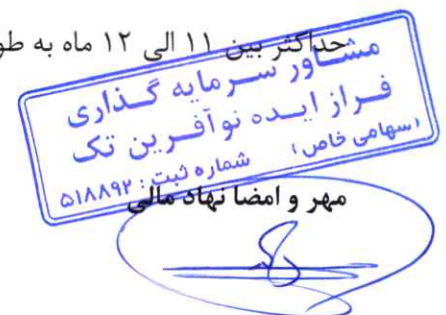 حداکثر بین ۱۱ الی ۱۲ ماه به طو
مشاور سرمایه گذاری
فراز ایده نوآفرین تک
(سهامی خاص)
شماره ثبت: ۵۱۸۸۹۲
مهر و امضا نهاد مالی